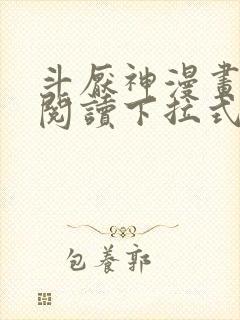 斗厭神漫畫
閱讀下拉式
包養郭